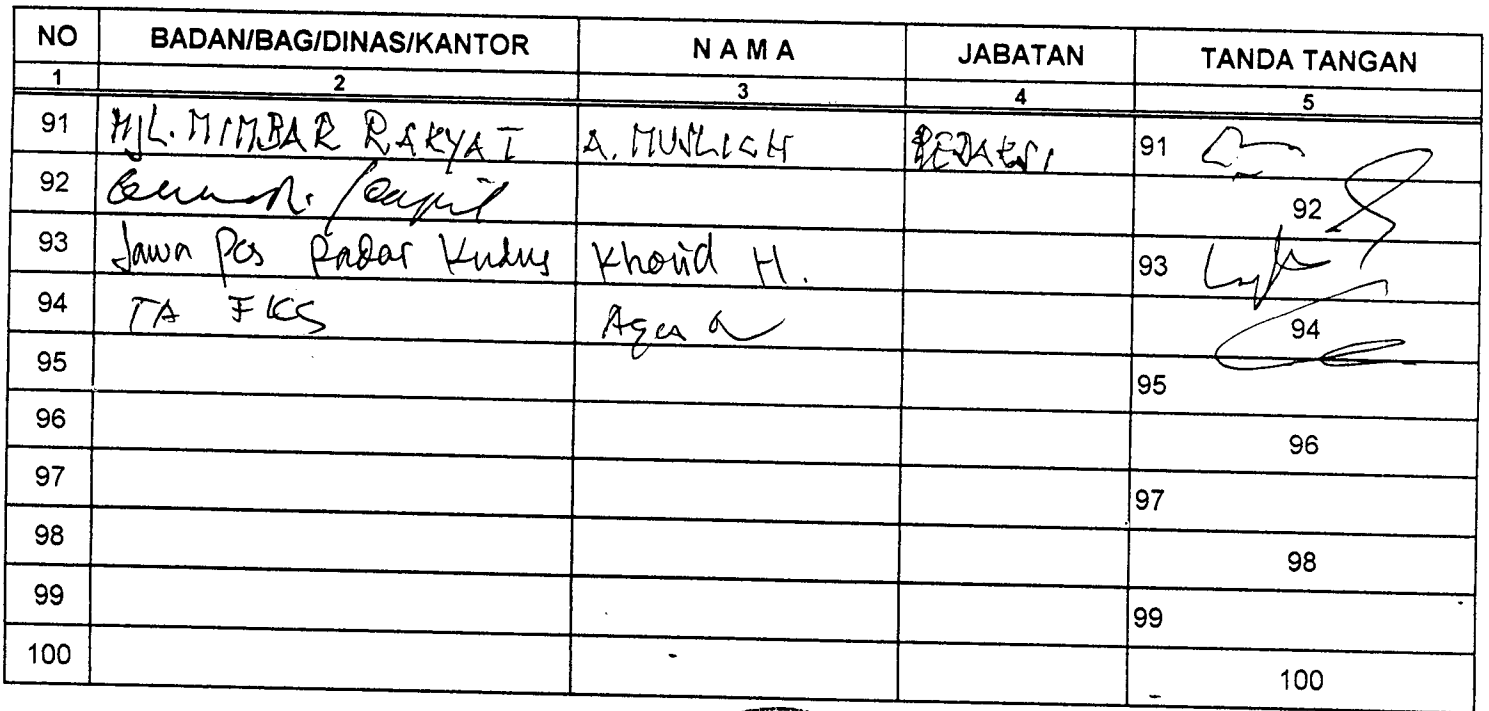 NO BADAN/BAG/DINAS/KANTOR N A M A JABATAN TANDA TANGAN
1 2 3 4 5
91 MJL. MIMBAR RAKYAT A. MUSLICH REDAKSI 91
92 92
93 Jawa Pos Radar Kudus Khoirid H. 93
94 TA FKS 94
95 95
96 96
97 97
98 98
99 99
100 100